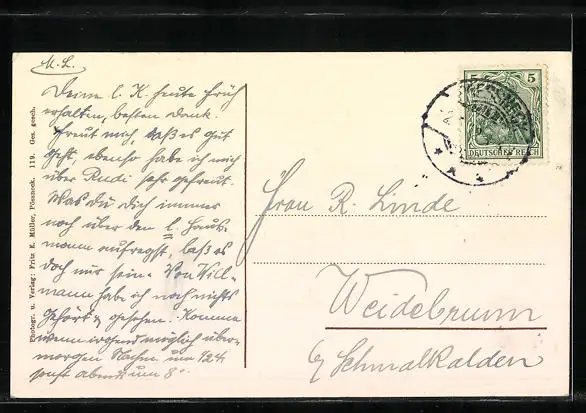 M. L.
Deine l. K. heute früh
erhalten, besten Dank.
Freut mich, daß es gut
geht, ebenso habe ich mich
über Rudi sehr gefreut.
Was du dich immer
noch über den l. Haus-
mann aufregst, laß es
doch nur sein. Von Will-
mann habe ich noch nichts
gehört & gesehen. Komme
wenn irgend möglich über-
morgen Nachm um 12
sonst abends um 8
Photogr. u. Verlag: Fritz E. Müller, Pössneck. 119. Ges. gesch.
5 5
DEUTSCHES REICH
Frau R. Linde
Weidebrunn
b/ Schmalkalden